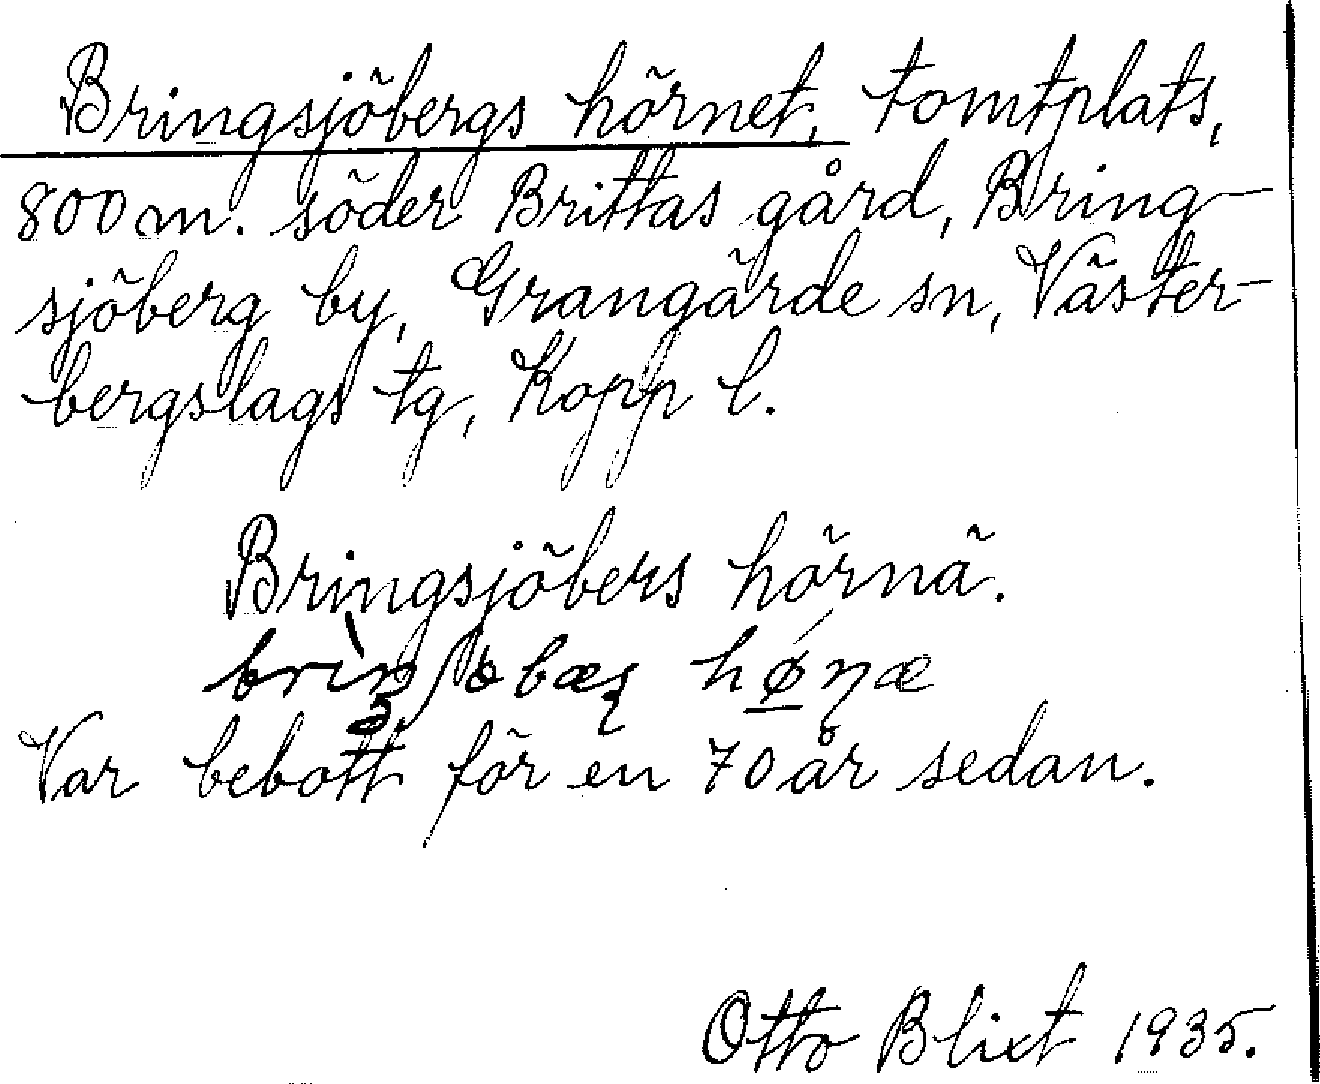 Bringsjöbergs hörnet, tomtplats,
800 m. söder Brittas gård, Bring-
sjöberg by, Grangärde sn, Väster-
bergslags tg, Kopp l.
Bringsjöbers hörnä.
hǿɳæ
Var bebott för en 70 år sedan.
Otto Blixt 1935.